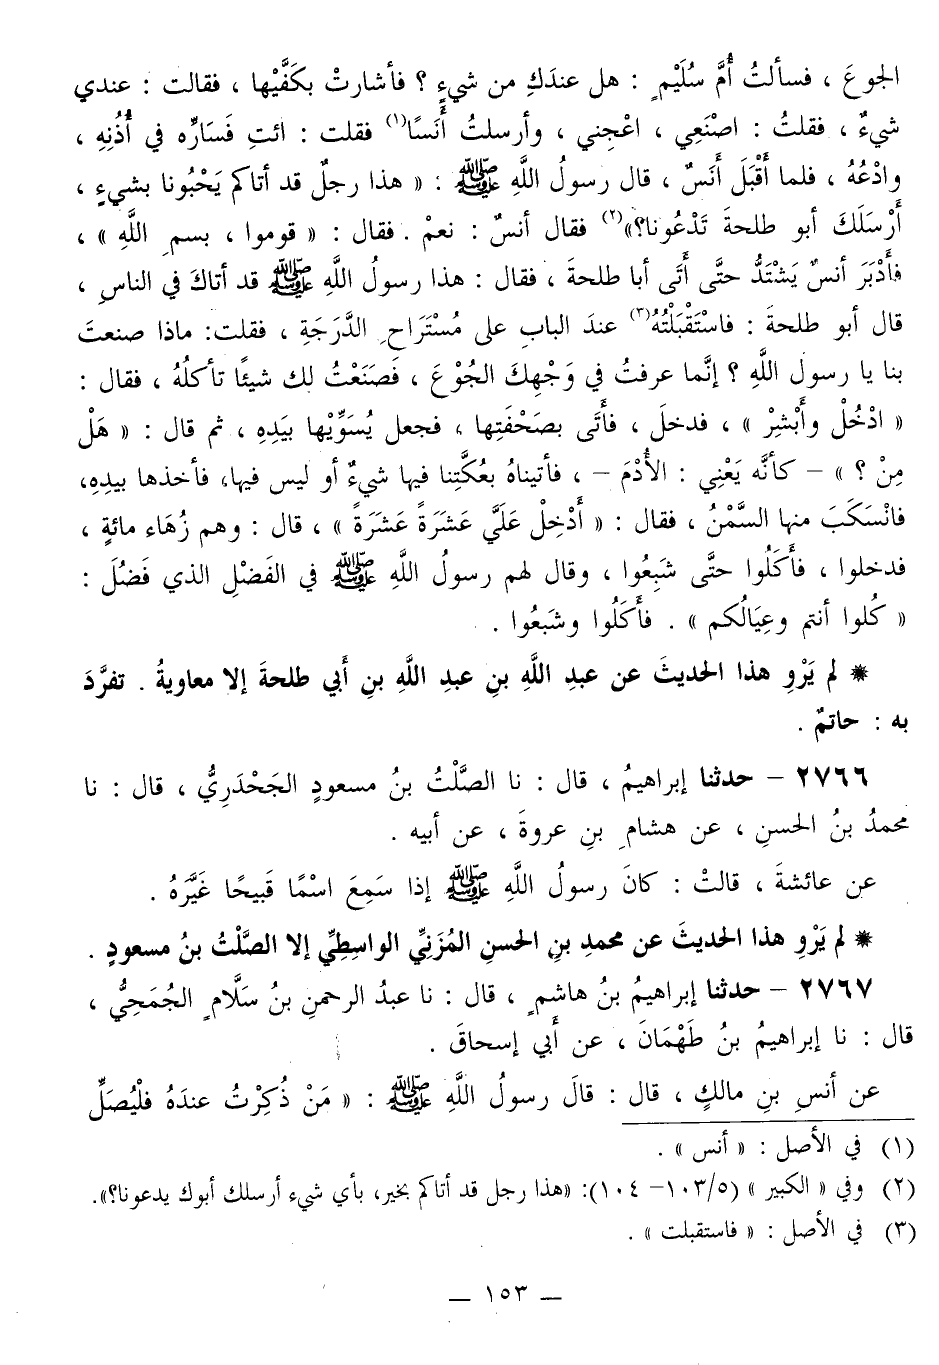 الجوعَ ، فسألتُ أُمَّ سُلَيْمٍ : هل عندَكِ من شيءٍ ؟ فأشارتْ بكَفَّيْها ، فقالت : عندي
شيءٌ ، فقلتُ : اصْنَعِي ، اعْجِني ، وأرسلتُ أَنَسًا(١) فقلت : ائتِ فَسَارِّه في أُذُنِهِ ،
وادْعُهُ ، فلما أَقْبَلَ أَنَسٌ ، قال رسولُ اللَّهِ ﷺ : « هذا رجلٌ قد أتاكم يَحْبُونا بشيءٍ ،
أَرْسَلَكَ أبو طلحةَ تَدْعُونا؟»(٢) فقال أنسٌ : نعمْ . فقال : « قوموا ، بسمِ اللَّهِ » ،
فأَدْبَرَ أنسٌ يَشْتَدُّ حتَّى أَتَى أبا طلحةَ ، فقال : هذا رسولُ اللَّهِ ﷺ قد أتاكَ في الناسِ ،
قال أبو طلحةَ : فاسْتَقْبَلْتُهُ(٣) عندَ البابِ على مُسْتَراحِ الدَّرَجَةِ ، فقلت: ماذا صنعتَ
بنا يا رسول اللَّهِ ؟ إنَّما عرفتُ في وَجْهِكَ الجُوْعَ ، فَصَنَعْتُ لك شيئًا تأكلُهُ ، فقال :
« ادْخُلْ وأَبْشِرْ » ، فدخلَ ، فأَتَى بصَحْفَتِها ، فجعل يُسَوِّيْها بيَدِهِ ، ثم قال : « هَلْ
مِنْ ؟ » – كأنَّه يَعْنِي : الأُدْمَ – ، فأتيناهُ بعُكَّتِنا فيها شيءٌ أو ليس فيها، فأخذها بيدِهِ،
فانْسَكَبَ منها السَّمْنُ ، فقال : « أَدْخِلْ عَلَيَّ عَشَرَةً عَشَرَةً » ، قال : وهم زُهَاء مائةٍ ،
فدخلوا ، فأَكَلُوا حتَّى شَبِعُوا ، وقال لهم رسولُ اللَّهِ ﷺ في الفَضْلِ الذي فَضُلَ :
« كُلوا أنتم وعِيَالُكم » . فأَكَلُوا وشَبِعُوا .
* لم يَرْوِ هذا الحديثَ عن عبدِ اللَّهِ بنِ عبدِ اللَّهِ بنِ أَبي طلحةَ إلا معاويةُ . تفرَّدَ
به : حاتمٌ .
٢٧٦٦ – حدثنا إبراهيمُ ، قال : نا الصَّلْتُ بنُ مسعودٍ الجَحْدَرِيُّ ، قال : نا
محمدُ بنُ الحسنِ ، عن هشامِ بنِ عروةَ ، عن أبيه .
عن عائشةَ ، قالتْ : كانَ رسولُ اللَّهِ ﷺ إذا سَمِعَ اسْمًا قَبيحًا غَيَّرَهُ .
* لم يَرْوِ هذا الحديثَ عن محمدِ بنِ الحسنِ المُزَنيِّ الواسِطِيِّ إلا الصَّلْتُ بنُ مسعودٍ .
٢٧٦٧ – حدثنا إبراهيمُ بنُ هاشمٍ ، قال : نا عبدُ الرحمنِ بنُ سَلَّامٍ الجُمَحِيُّ ،
قال : نا إبراهيمُ بنُ طَهْمَانَ ، عن أَبي إسحاقَ .
عن أنسِ بنِ مالكٍ ، قال : قالَ رسولُ اللَّهِ ﷺ : « مَنْ ذُكِرْتُ عندَهُ فلْيُصَلِّ
(١) في الأصل : « أنس » .
(٢) وفي « الكبير » (١٠٣/٥– ١٠٤): «هذا رجل قد أتاكم بخير، بأي شيء أرسلك أبوك يدعونا؟».
(٣) في الأصل : « فاستقبلت » .
– ١٥٣ –